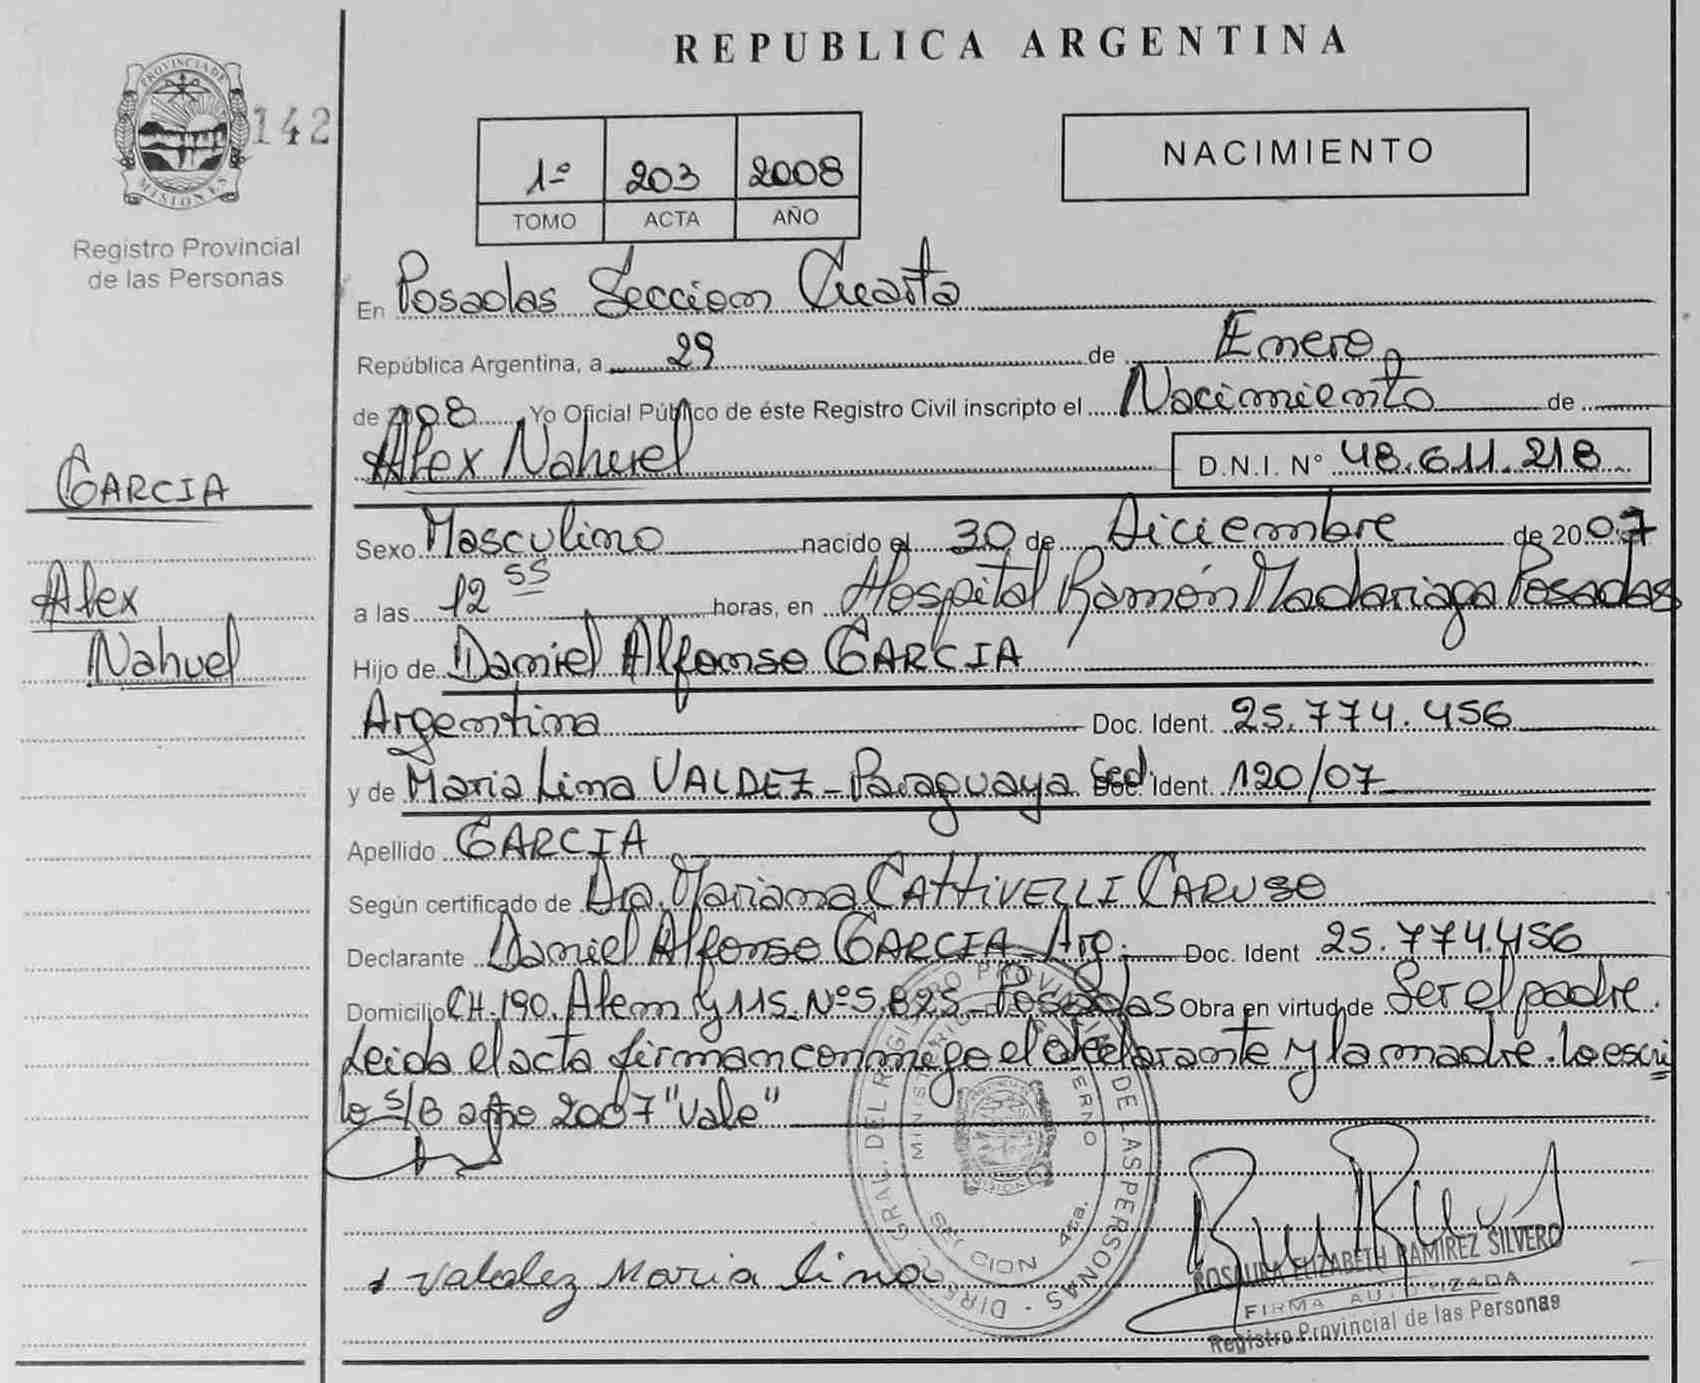 REPUBLICA ARGENTINA
PROVINCIA DE
MISIONES
142
Registro Provincial
de las Personas
1º 203 2008
TOMO ACTA AÑO
NACIMIENTO
En Posadas Seccion Cuarta
República Argentina, a 29 de Enero
de 2008 Yo Oficial Público de éste Registro Civil inscripto el Nacimiento de
Alex Nahuel D.N.I. Nº 48.611.218
GARCIA
Alex
Nahuel
Sexo Masculino nacido el 30 de Diciembre de 2007
a las 12 55 horas, en Hospital Ramón Madariaga Posadas
Hijo de Daniel Alfonso GARCIA
Argentina Doc. Ident. 25.774.456
y de Maria Lina VALDEZ - Paraguaya Ced. Ident. 120/07
Apellido GARCIA
Según certificado de Dra. Mariana CATTIVELLI CARUSO
Declarante Daniel Alfonso GARCIA - Arg. Doc. Ident 25.774.456
Domicilio CH.190. Alem y 115. Nº 5.825 - Posadas Obra en virtud de Ser el padre.
Leida el acta firman conmigo el declarante y la madre. Lo escri
to s/B año 2007 "Vale"
Valdez Maria Lina
DIRECC. GRAL. DEL REGISTRO PROVINCIAL DE LAS PERSONAS
ROSALINA ELIZABETH RAMIREZ SILVERO
FIRMA AUTORIZADA
Registro Provincial de las Personas